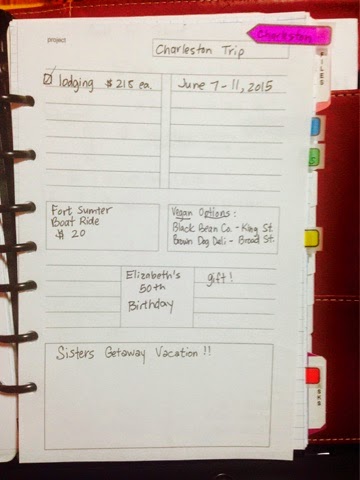 project
Charleston Trip
Charleston
FILES
lodging $215 ea
June 7-11, 2015
Fort Sumter
Boat Ride
$20
Vegan Options:
Black Bean Co. - King St.
Brown Dog Deli - Broad St.
Elizabeth's
50th
Birthday
gift!
Sisters Getaway Vacation!!